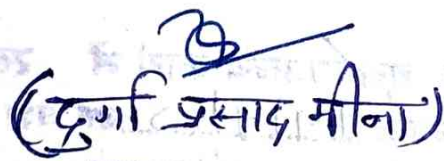 (दुर्गा प्रसाद मीना)